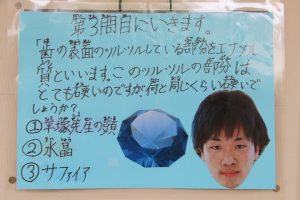 第3問目にいきます。
「歯の表面のツルツルしている部分をエナメル
質といいます。このツルツルの部分は
とても硬いのですが何と同じくらい硬いで
しょうか?
①草塚先生の顎
②水晶
③サファイア